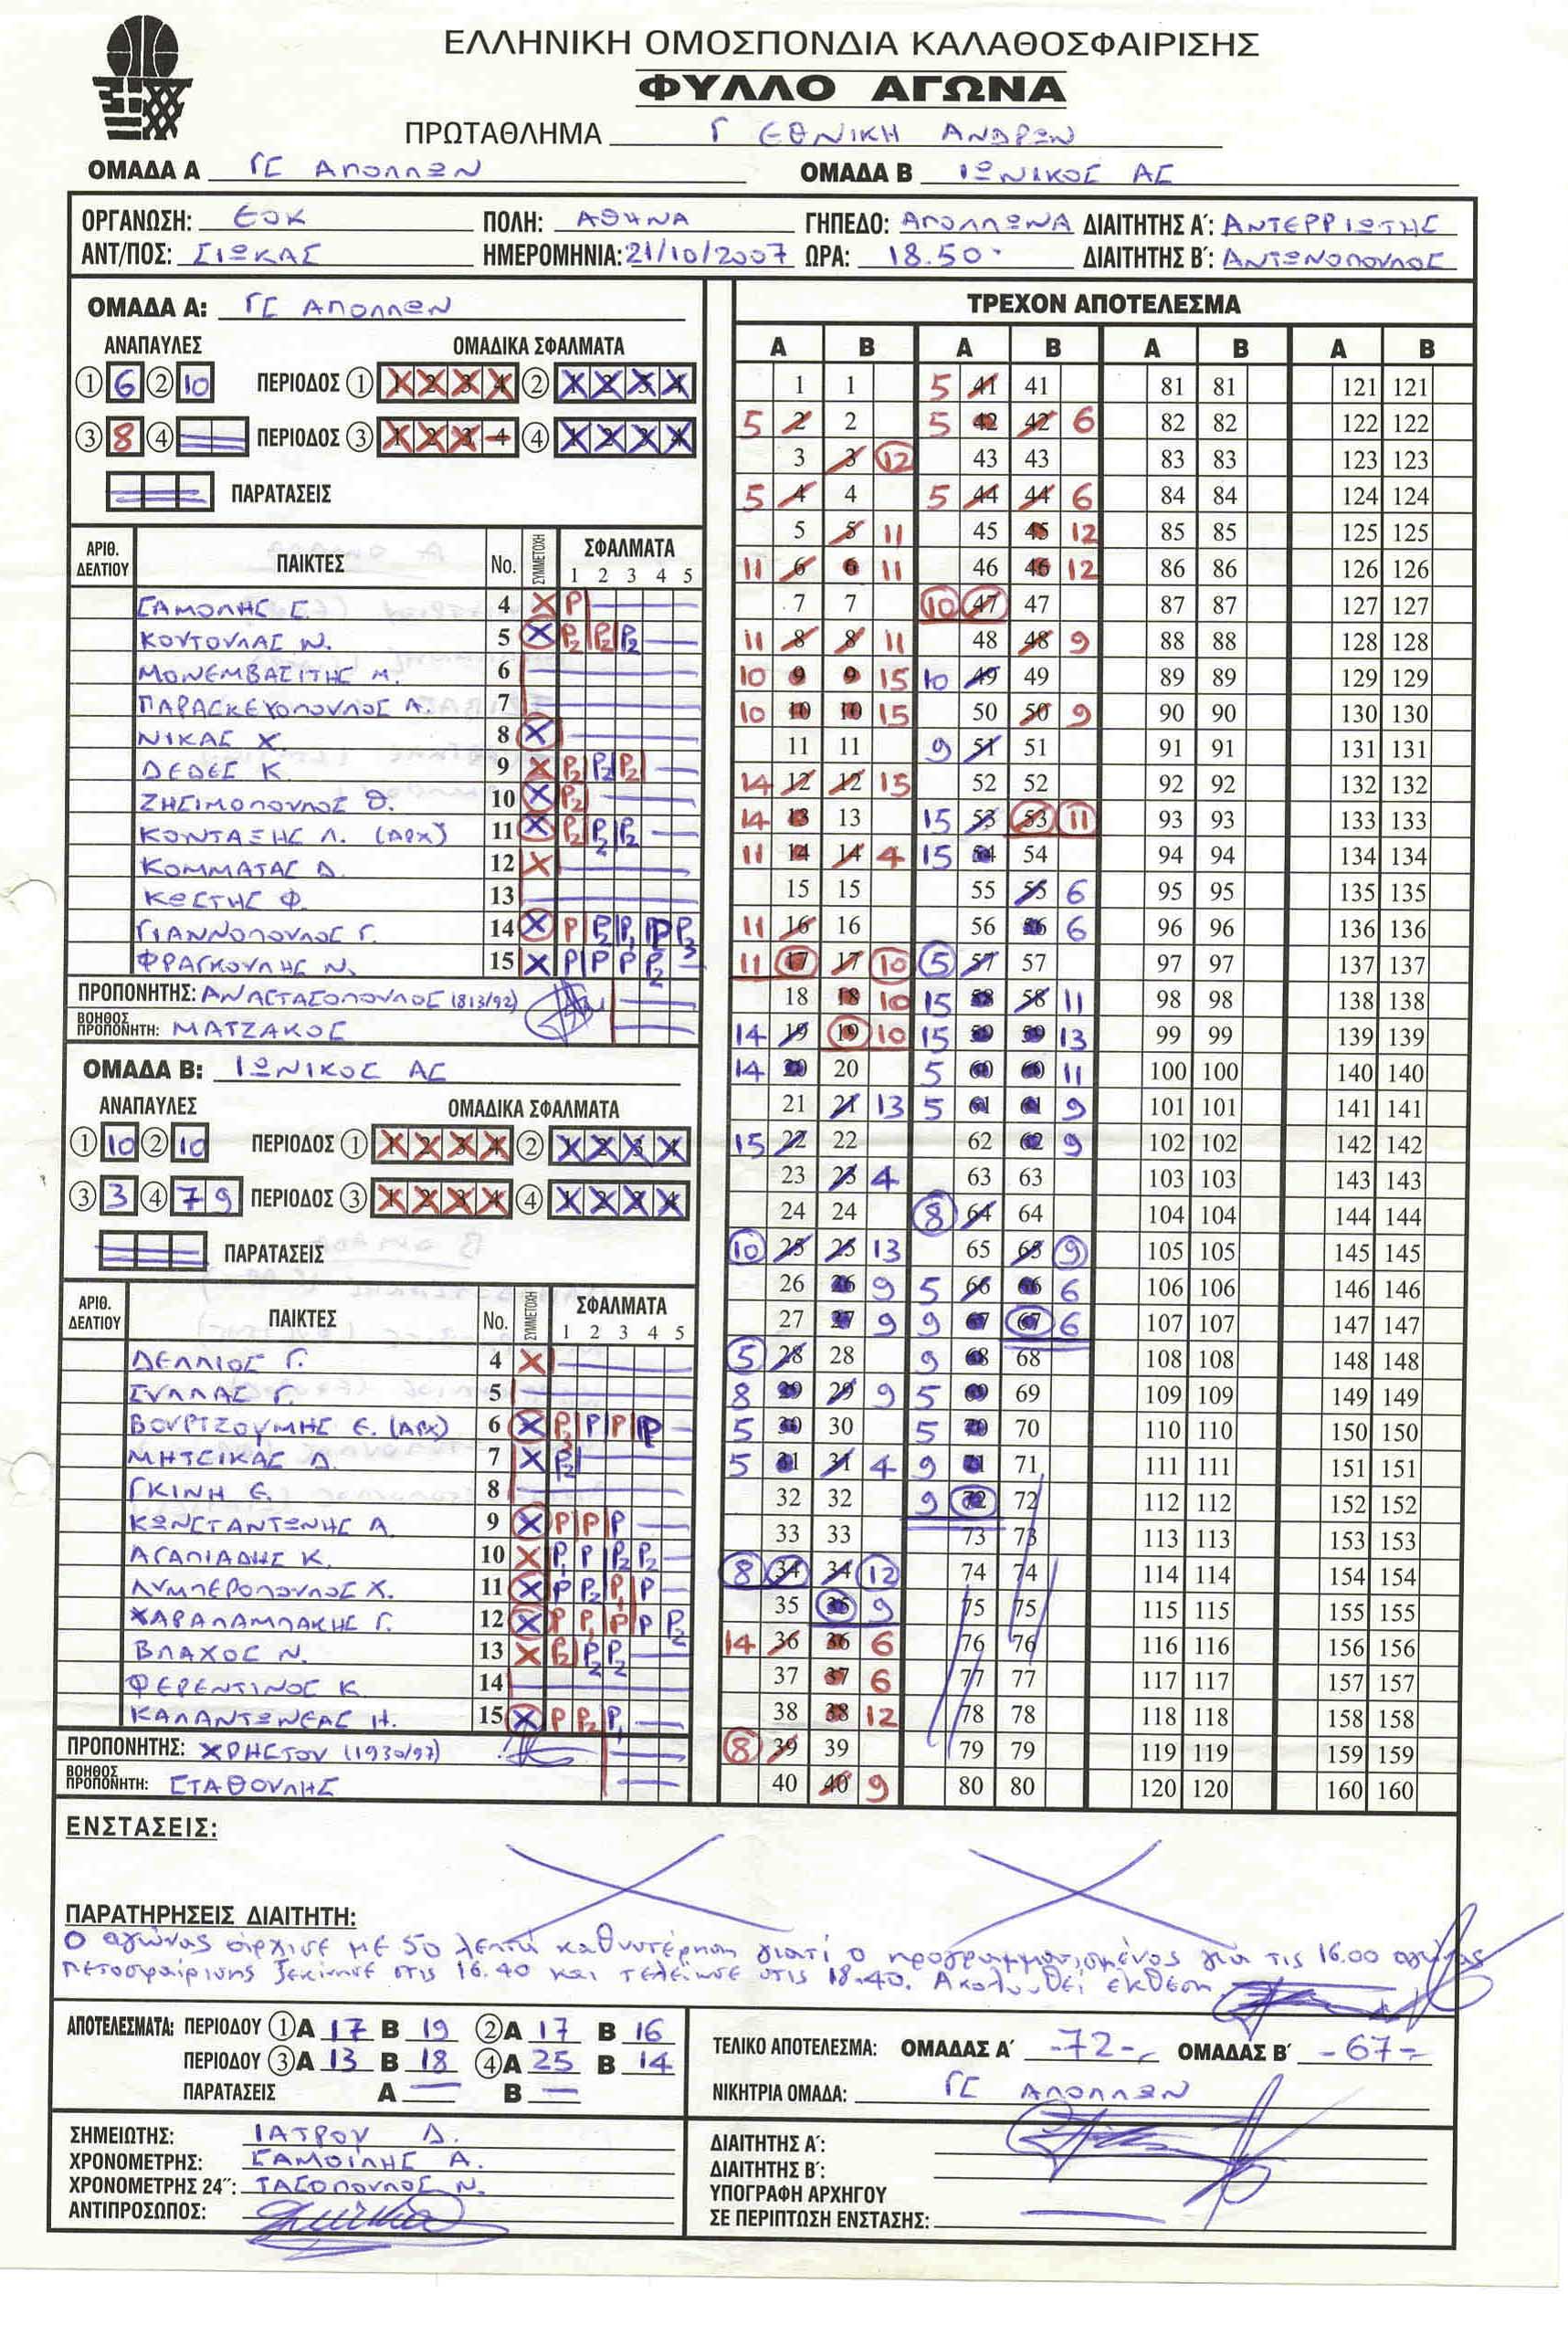 ΕΛΛΗΝΙΚΗ ΟΜΟΣΠΟΝΔΙΑ ΚΑΛΑΘΟΣΦΑΙΡΙΣΗΣ
ΦΥΛΛΟ ΑΓΩΝΑ
ΠΡΩΤΑΘΛΗΜΑ Γ ΕΘΝΙΚΗ ΑΝΔΡΩΝ
ΟΜΑΔΑ Α ΓΣ ΑΠΟΛΛΩΝ ΟΜΑΔΑ Β ΙΩΝΙΚΟΣ ΑΣ
ΟΡΓΑΝΩΣΗ: ΕΟΚ ΠΟΛΗ: ΑΘΗΝΑ ΓΗΠΕΔΟ: ΑΠΟΛΛΩΝΑ ΔΙΑΙΤΗΤΗΣ Α΄: ΑΝΤΕΡΡΙΩΤΗΣ
ΑΝΤ/ΠΟΣ: ΣΙΩΚΑΣ ΗΜΕΡΟΜΗΝΙΑ: 21/10/2007 ΩΡΑ: 18.50 ΔΙΑΙΤΗΤΗΣ Β΄: ΑΝΤΩΝΟΠΟΥΛΟΣ
ΟΜΑΔΑ Α: ΓΣ ΑΠΟΛΛΩΝ
ΑΝΑΠΑΥΛΕΣ ΟΜΑΔΙΚΑ ΣΦΑΛΜΑΤΑ
1 6 2 10 ΠΕΡΙΟΔΟΣ 1 1 2 3 4 2 1 2 3 4
3 8 4 ΠΕΡΙΟΔΟΣ 3 1 2 3 4 4 1 2 3 4
ΠΑΡΑΤΑΣΕΙΣ
ΑΡΙΘ. ΔΕΛΤΙΟΥ ΠΑΙΚΤΕΣ No. ΣΥΜΜΕΤΟΧΗ ΣΦΑΛΜΑΤΑ
1 2 3 4 5
ΣΑΜΟΛΗΣ Σ. 4 X P
ΚΟΥΤΟΥΛΑΣ Ν. 5 X P2 P2 P2
ΜΟΝΕΜΒΑΣΙΤΗΣ Μ. 6
ΠΑΡΑΣΚΕΥΟΠΟΥΛΟΣ Α. 7
ΝΙΚΑΣ Χ. 8 X
ΔΕΔΕΣ Κ. 9 X P2 P2 P2
ΖΗΣΙΜΟΠΟΥΛΟΣ Θ. 10 X P2
ΚΟΝΤΑΞΗΣ Λ. (ΑΡΧ) 11 X P2 P2 P2
ΚΟΜΜΑΤΑΣ Δ. 12 X
ΚΩΣΤΗΣ Φ. 13
ΓΙΑΝΝΟΠΟΥΛΟΣ Γ. 14 X P P2 P1 P P3
ΦΡΑΓΚΟΥΛΗΣ Ν. 15 X P P P P2
ΠΡΟΠΟΝΗΤΗΣ: ΑΝΑΣΤΑΣΟΠΟΥΛΟΣ (1813/92)
ΒΟΗΘΟΣ ΠΡΟΠΟΝΗΤΗ: ΜΑΤΖΑΚΟΣ
ΟΜΑΔΑ Β: ΙΩΝΙΚΟΣ ΑΣ
ΑΝΑΠΑΥΛΕΣ ΟΜΑΔΙΚΑ ΣΦΑΛΜΑΤΑ
1 10 2 10 ΠΕΡΙΟΔΟΣ 1 1 2 3 4 2 1 2 3 4
3 3 4 7 9 ΠΕΡΙΟΔΟΣ 3 1 2 3 4 4 1 2 3 4
ΠΑΡΑΤΑΣΕΙΣ
ΑΡΙΘ. ΔΕΛΤΙΟΥ ΠΑΙΚΤΕΣ No. ΣΥΜΜΕΤΟΧΗ ΣΦΑΛΜΑΤΑ
1 2 3 4 5
ΔΕΛΛΙΟΣ Γ. 4 X
ΣΥΛΛΑΣ Γ. 5
ΒΟΥΡΤΖΟΥΜΗΣ Ε. (ΑΡΧ) 6 X P2 P P P
ΜΗΤΣΙΚΑΣ Δ. 7 X P2
ΓΚΙΝΗ Ε. 8
ΚΩΝΣΤΑΝΤΩΝΗΣ Α. 9 X P P P
ΑΓΑΠΙΑΔΗΣ Κ. 10 X P1 P P2 P2
ΛΥΜΠΕΡΟΠΟΥΛΟΣ Χ. 11 X P P2 P1 P
ΧΑΡΑΛΑΜΠΑΚΗΣ Γ. 12 X P P1 P P P2
ΒΛΑΧΟΣ Ν. 13 X P2 P2 P2
ΦΕΡΕΝΤΙΝΟΣ Κ. 14
ΚΑΛΑΝΤΩΝΕΑΣ Η. 15 X P P2 P1
ΠΡΟΠΟΝΗΤΗΣ: ΧΡΗΣΤΟΥ (1930/97)
ΒΟΗΘΟΣ ΠΡΟΠΟΝΗΤΗ: ΣΤΑΘΟΥΛΗΣ
ΤΡΕΧΟΝ ΑΠΟΤΕΛΕΣΜΑ
Α Β Α Β Α Β Α Β
1 1 5 41 41 81 81 121 121
5 2 2 5 42 42 6 82 82 122 122
3 3 12 43 43 83 83 123 123
5 4 4 5 44 44 6 84 84 124 124
5 5 11 45 45 12 85 85 125 125
11 6 6 11 46 46 12 86 86 126 126
7 7 10 47 47 87 87 127 127
11 8 8 11 48 48 9 88 88 128 128
10 9 9 15 10 49 49 89 89 129 129
10 10 10 15 50 50 9 90 90 130 130
11 11 9 51 51 91 91 131 131
14 12 12 15 52 52 92 92 132 132
14 13 13 15 53 53 11 93 93 133 133
11 14 14 4 15 54 54 94 94 134 134
15 15 55 55 6 95 95 135 135
11 16 16 56 56 6 96 96 136 136
11 17 17 10 5 57 57 97 97 137 137
18 18 10 15 58 58 11 98 98 138 138
14 19 19 10 15 59 59 13 99 99 139 139
14 20 20 5 60 60 11 100 100 140 140
21 21 13 5 61 61 9 101 101 141 141
15 22 22 62 62 9 102 102 142 142
23 23 4 63 63 103 103 143 143
24 24 8 64 64 104 104 144 144
10 25 25 13 65 65 9 105 105 145 145
26 26 9 5 66 66 6 106 106 146 146
27 27 9 9 67 67 6 107 107 147 147
5 28 28 9 68 68 108 108 148 148
8 29 29 9 5 69 69 109 109 149 149
5 30 30 5 70 70 110 110 150 150
5 31 31 4 9 71 71 111 111 151 151
32 32 9 72 72 112 112 152 152
33 33 73 73 113 113 153 153
8 34 34 12 74 74 114 114 154 154
35 35 9 75 75 115 115 155 155
14 36 36 6 76 76 116 116 156 156
37 37 6 77 77 117 117 157 157
38 38 12 78 78 118 118 158 158
8 39 39 79 79 119 119 159 159
40 40 9 80 80 120 120 160 160
ΕΝΣΤΑΣΕΙΣ:
ΠΑΡΑΤΗΡΗΣΕΙΣ ΔΙΑΙΤΗΤΗ:
Ο αγώνας άρχισε με 50 λεπτά καθυστέρηση γιατί ο προγραμματισμένος για τις 16.00 αγώνας
πετοσφαίρισης ξεκίνησε στις 16.40 και τελείωσε στις 18.40. Ακολουθεί έκθεση
ΑΠΟΤΕΛΕΣΜΑΤΑ: ΠΕΡΙΟΔΟΥ 1 Α 17 Β 19 2 Α 17 Β 16
ΠΕΡΙΟΔΟΥ 3 Α 13 Β 18 4 Α 25 Β 14
ΠΑΡΑΤΑΣΕΙΣ Α — Β —
ΤΕΛΙΚΟ ΑΠΟΤΕΛΕΣΜΑ: ΟΜΑΔΑΣ Α΄ -72- ΟΜΑΔΑΣ Β΄ -67-
ΝΙΚΗΤΡΙΑ ΟΜΑΔΑ: ΓΣ ΑΠΟΛΛΩΝ
ΣΗΜΕΙΩΤΗΣ: ΙΑΤΡΟΥ Δ.
ΧΡΟΝΟΜΕΤΡΗΣ: ΣΑΜΟΙΛΗΣ Α.
ΧΡΟΝΟΜΕΤΡΗΣ 24΄΄: ΤΑΣΟΠΟΥΛΟΣ Ν.
ΑΝΤΙΠΡΟΣΩΠΟΣ:
ΔΙΑΙΤΗΤΗΣ Α΄:
ΔΙΑΙΤΗΤΗΣ Β΄:
ΥΠΟΓΡΑΦΗ ΑΡΧΗΓΟΥ
ΣΕ ΠΕΡΙΠΤΩΣΗ ΕΝΣΤΑΣΗΣ: